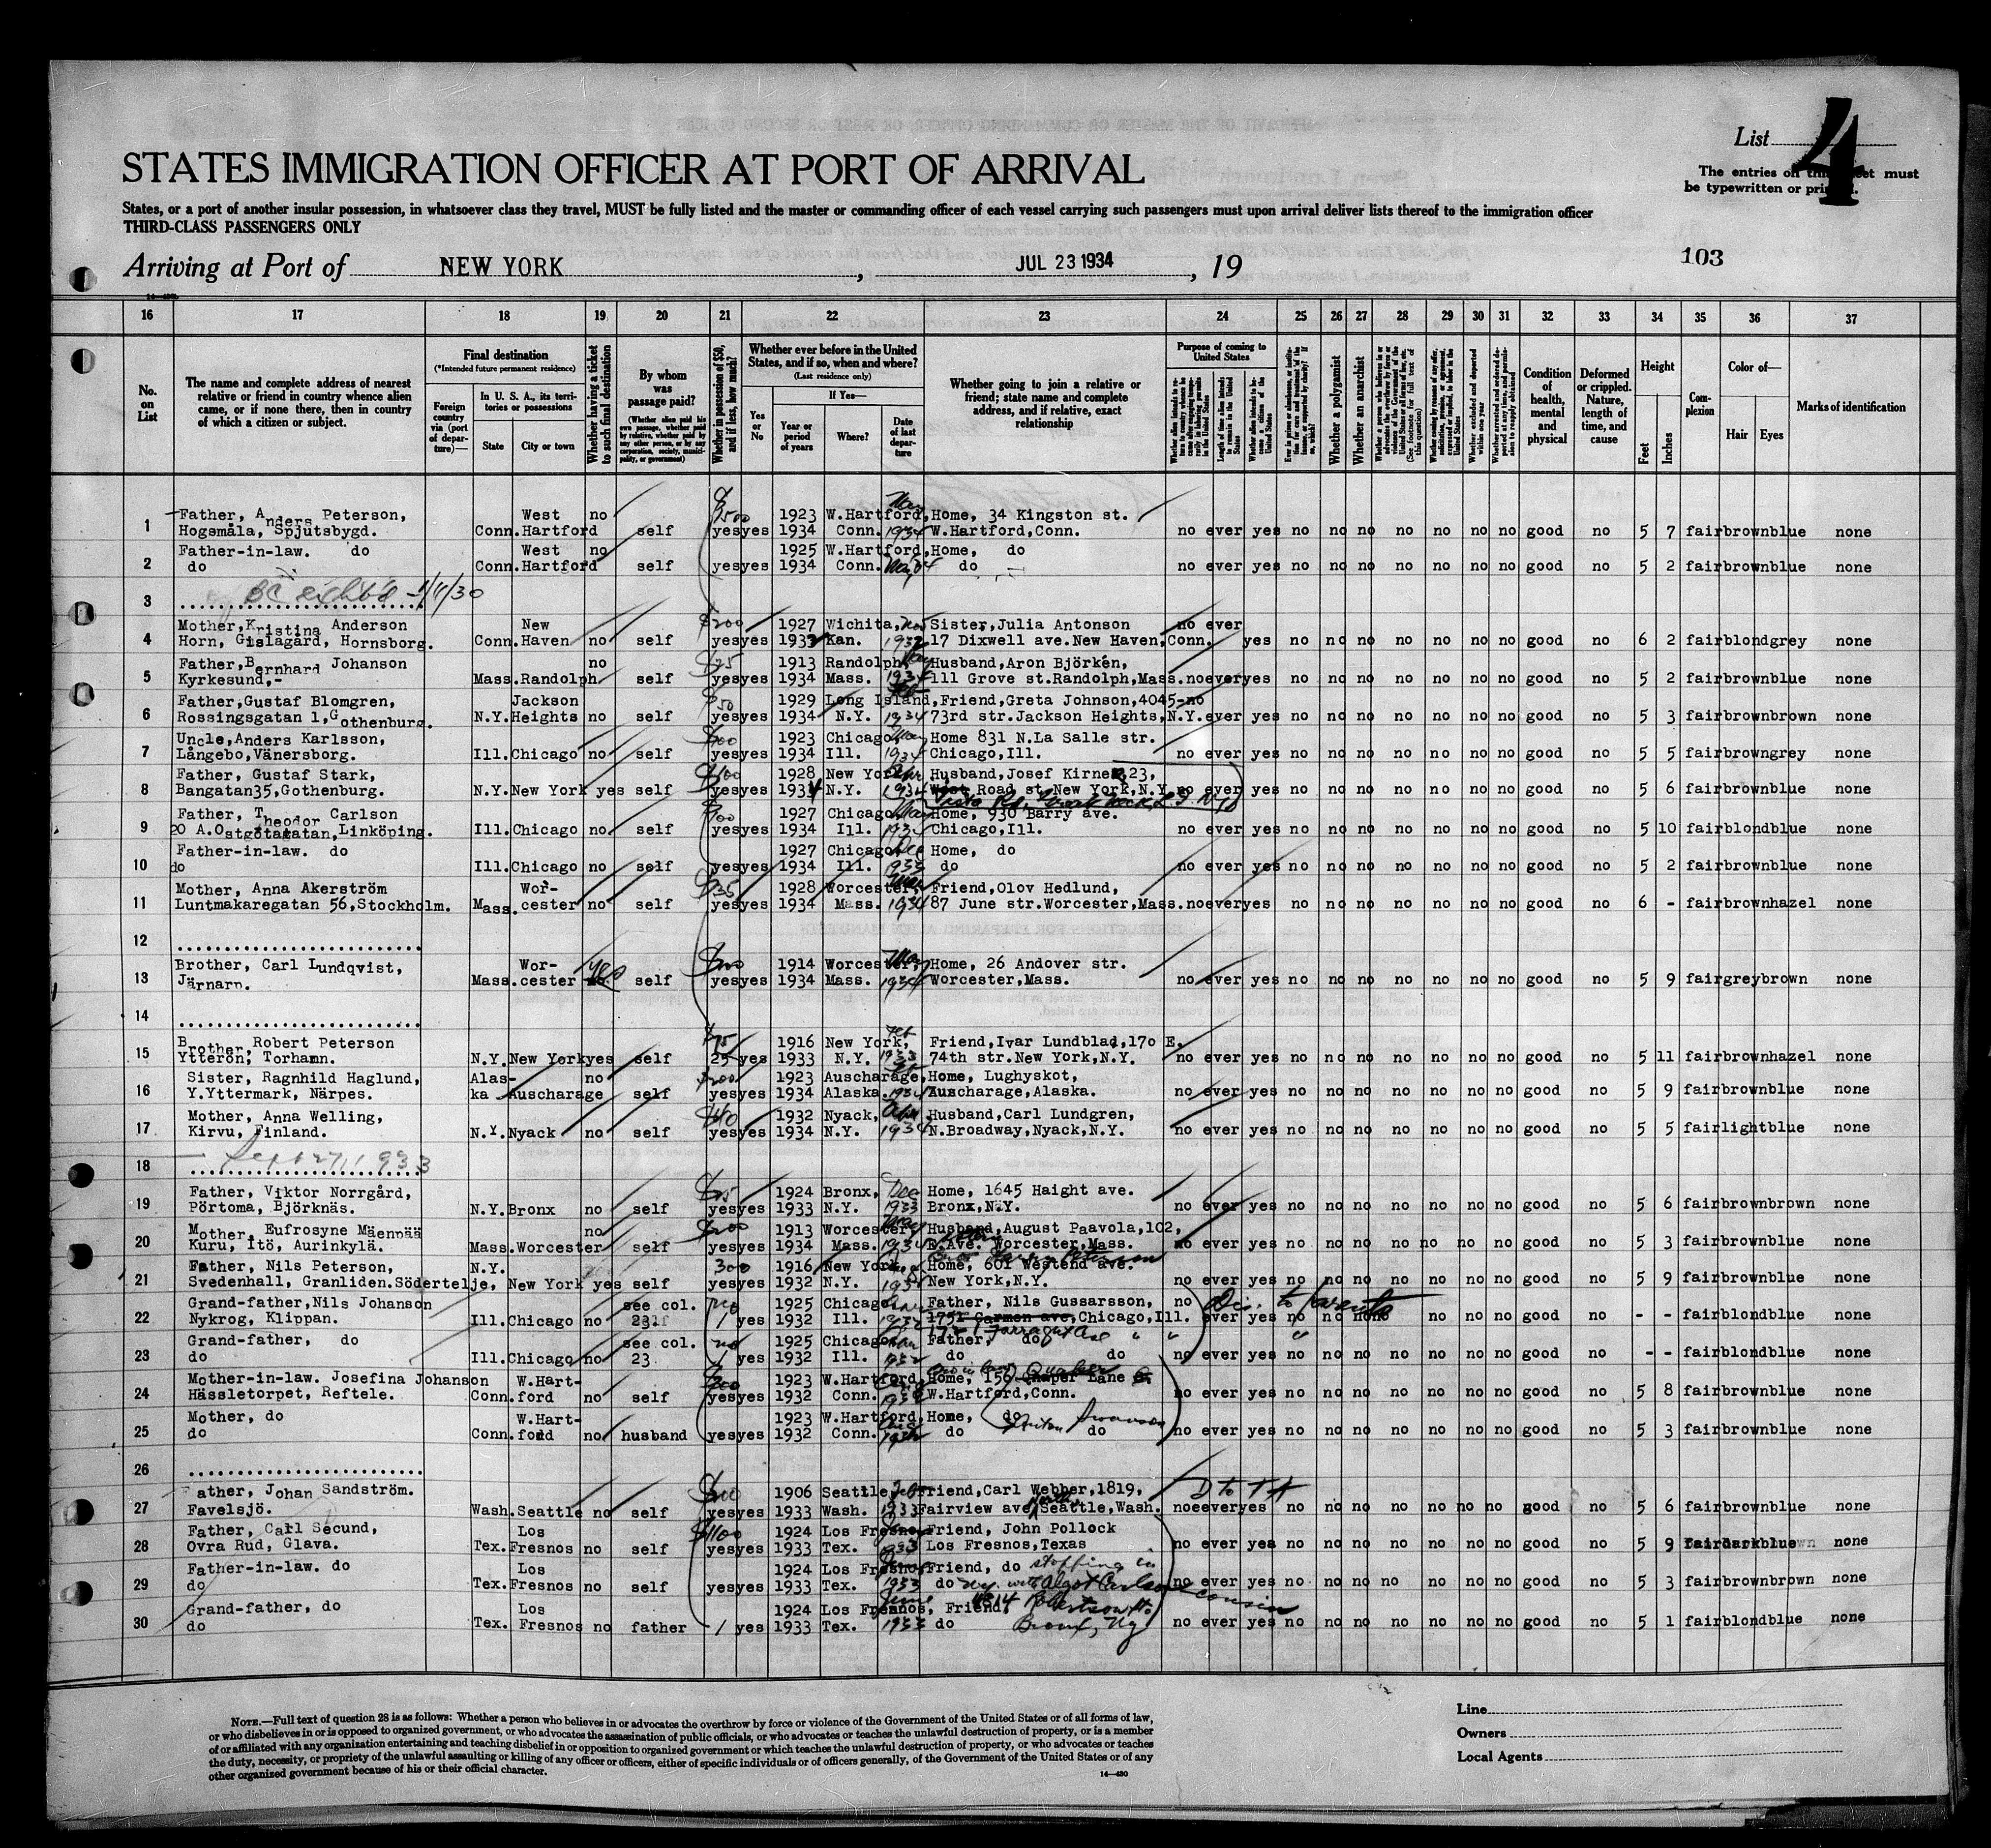 List 4
STATES IMMIGRATION OFFICER AT PORT OF ARRIVAL
The entries on this sheet must
be typewritten or printed.
States, or a port of another insular possession, in whatsoever class they travel, MUST be fully listed and the master or commanding officer of each vessel carrying such passengers must upon arrival deliver lists thereof to the immigration officer
THIRD-CLASS PASSENGERS ONLY
Arriving at Port of NEW YORK, JUL 23 1934, 19
103
16 17 18 19 20 21 22 23 24 25 26 27 28 29 30 31 32 33 34 35 36 37
No. on List
The name and complete address of nearest relative or friend in country whence alien came, or if none there, then in country of which a citizen or subject.
Final destination
(*Intended future permanent residence)
Foreign country via (port of departure)—
In U. S. A., its territories or possessions
State
City or town
Whether having a ticket to such final destination
By whom was passage paid?
(Whether alien paid his own passage, whether paid by relative, whether paid by any other person, or by any corporation, society, municipality, or government)
Whether in possession of $50, and if less, how much?
Whether ever before in the United States, and if so, when and where?
(Last residence only)
Yes or No
If Yes—
Year or period of years
Where?
Date of last departure
Whether going to join a relative or friend; state name and complete address, and if relative, exact relationship
Purpose of coming to United States
Length of time alien intends to remain in the United States
Whether alien intends to become a citizen of the United States
Whether a polygamist
Whether an anarchist
Condition of health, mental and physical
Deformed or crippled. Nature, length of time, and cause
Height
Feet
Inches
Complexion
Color of—
Hair
Eyes
Marks of identification
1 Father, Anders Peterson, West no $500 1923 W.Hartford, Home, 34 Kingston st.
Hogsmåla, Spjutsbygd. Conn. Hartford self yes yes 1934 Conn. 1934 W.Hartford,Conn. no ever yes no no no no no no no good no 5 7 fair brown blue none
2 Father-in-law. do West no 1925 W.Hartford, Home, do
do Conn. Hartford self yes yes 1934 Conn. do no ever yes no no no no no no no good no 5 2 fair brown blue none
3
4 Mother, Kristina Anderson New $200 1927 Wichita, Sister, Julia Antonson no ever
Horn, Gislagård, Hornsborg. Conn. Haven no self yes yes 1932 Kan. 1932 17 Dixwell ave. New Haven, Conn. yes no no no no no no no good no 6 2 fair blond grey none
5 Father, Bernhard Johanson no 1913 Randolph, Husband, Aron Björkén,
Kyrkesund,- Mass. Randolph self yes yes 1934 Mass. 1934 111 Grove st. Randolph, Mass. no ever yes no no no no no no no good no 5 2 fair brown blue none
6 Father, Gustaf Blomgren, Jackson 1929 Long Island, Friend, Greta Johnson, 4045- no
Rossingsgatan 1, Gothenburg. N.Y. Heights no self yes yes 1934 N.Y. 1934 73rd str. Jackson Heights, N.Y. ever yes no no no no no no no good no 5 3 fair brown brown none
7 Uncle, Anders Karlsson, 1923 Chicago, Home 831 N.La Salle str.
Långebo, Vänersborg. Ill. Chicago no self yes yes 1934 Ill. 1934 Chicago, Ill. no ever yes no no no no no no no good no 5 5 fair brown grey none
8 Father, Gustaf Stark, 1928 New York Husband, Josef Kirner, 23,
Bangatan 35, Gothenburg. N.Y. New York yes self yes yes 1934 N.Y. 1934 West Road st. New York, N.Y. no ever yes no no no no no no no good no 5 6 fair brown blue none
9 Father, Theodor Carlson 1927 Chicago, Home, 930 Barry ave.
20 A.Ostgötagatan, Linköping. Ill. Chicago no self yes yes 1934 Ill. 1934 Chicago, Ill. no ever yes no no no no no no no good no 5 10 fair blond blue none
10 Father-in-law. do 1927 Chicago Dec Home, do
do Ill. Chicago no self yes yes 1934 Ill. 1933 do no ever yes no no no no no no no good no 5 2 fair brown blue none
11 Mother, Anna Akerström Wor- 1928 Worcester, Friend, Olov Hedlund,
Luntmakaregatan 56, Stockholm. Mass. cester no self yes yes 1934 Mass. 1934 87 June str. Worcester, Mass. no ever yes no no no no no no no good no 6 - fair brown hazel none
12
13 Brother, Carl Lundqvist, Wor- yes 1914 Worcester, Home, 26 Andover str.
Järnarp. Mass. cester self yes yes 1934 Mass. 1934 Worcester, Mass. no ever yes no no no no no no no good no 5 9 fair grey brown none
14
15 Brother, Robert Peterson $75 1916 New York, Feb Friend, Ivar Lundblad, 170 E.
Ytterön, Torhamn. N.Y. New York yes self 25 yes 1933 N.Y. 1933 74th str. New York, N.Y. no ever yes no no no no no no no good no 5 11 fair brown hazel none
16 Sister, Ragnhild Haglund, Alas- no $200 1923 Auscharage, Home, Lughyskot,
Y.Yttermark, Närpes. ka Auscharage self yes yes 1934 Alaska. 1934 Auscharage, Alaska. no ever yes no no no no no no no good no 5 9 fair brown blue none
17 Mother, Anna Welling, 1932 Nyack, Husband, Carl Lundgren,
Kirvu, Finland. N.Y. Nyack no self yes yes 1934 N.Y. 1934 N.Broadway, Nyack, N.Y. no ever yes no no no no no no no good no 5 5 fair light blue none
18
19 Father, Viktor Norrgård, 1924 Bronx, Dec Home, 1645 Haight ave.
Pörtoma, Björknäs. N.Y. Bronx no self yes yes 1933 N.Y. 1933 Bronx, N.Y. no ever yes no no no no no no no good no 5 6 fair brown brown none
20 Mother, Eufrosyne Mäenpää no $200 1913 Worcester, Husband, August Paavola, 102,
Kuru, Itö, Aurinkylä. Mass. Worcester self yes yes 1934 Mass. 1934 Ave. Worcester, Mass. no ever yes no no no no no no no good no 5 3 fair brown blue none
21 Father, Nils Peterson, N.Y. 300 1916 New York, Home, 601 Westend ave.
Svedenhall, Granliden. Södertelje, New York yes self yes yes 1932 N.Y. New York, N.Y. no ever yes no no no no no no no good no 5 9 fair brown blue none
22 Grand-father, Nils Johanson see col. no 1925 Chicago Father, Nils Gussarsson, no Dis. to parents
Nykrog, Klippan. Ill. Chicago no 23. 1 yes 1932 Ill. 1932 1751 Carmen ave, Chicago, Ill. ever yes no no none no no no good no - - fair blond blue none
23 Grand-father, do see col. no 1925 Chicago Father, do
do Ill. Chicago no 23. 1 yes 1932 Ill. 1932 do do no ever yes no no no no no no no good no - - fair blond blue none
24 Mother-in-law. Josefina Johanson W.Hart- 1923 W.Hartford, Home, 156 Quaker Lane
Hässletorpet, Reftele. Conn. ford no self yes yes 1932 Conn. W.Hartford, Conn. no ever yes no no no no no no no good no 5 8 fair brown blue none
25 Mother, do W.Hart- 1923 W.Hartford, Home, do Swanson
do Conn. ford no husband yes yes 1932 Conn. do do no ever yes no no no no no no no good no 5 3 fair brown blue none
26
27 Father, Johan Sandström. 1906 Seattle Feb Friend, Carl Webber, 1819, D to T A
Favelsjö. Wash. Seattle no self yes yes 1933 Wash. 1933 Fairview ave, North Seattle, Wash. no ever yes no no no no no no no good no 5 6 fair brown blue none
28 Father, Carl Secund, Los $1100 1924 Los Fresnos Friend, John Pollock
Ovra Rud, Glava. Tex. Fresnos no self yes yes 1933 Tex. 1933 Los Fresnos, Texas no ever yes no no no no no no no good no 5 9 fair dark blue none
29 Father-in-law. do Los 1924 Los Fresnos June Friend, do stopping in
do Tex. Fresnos no self yes yes 1933 Tex. 1933 do N.y. with Algot Carlson cousin no ever yes no no no no no no no good no 5 3 fair brown brown none
30 Grand-father, do Los 1924 Los Fresnos, June Friend, Robertson
do Tex. Fresnos no father 1 yes 1933 Tex. 1933 do Bronx, Ny no ever yes no no no no no no no good no 5 1 fair blond blue none
NOTE.—Full text of question 28 is as follows: Whether a person who believes in or advocates the overthrow by force or violence of the Government of the United States or of all forms of law,
or who disbelieves in or is opposed to organized government, or who advocates the assassination of public officials, or who advocates or teaches the unlawful destruction of property, or is a member
of or affiliated with any organization entertaining and teaching disbelief in or opposition to organized government or which teaches the unlawful destruction of property, or who advocates or teaches
the duty, necessity, or propriety of the unlawful assaulting or killing of any officer or officers, either of specific individuals or of officers generally, of the Government of the United States or of any
other organized government because of his or their official character.
14—430
Line
Owners
Local Agents